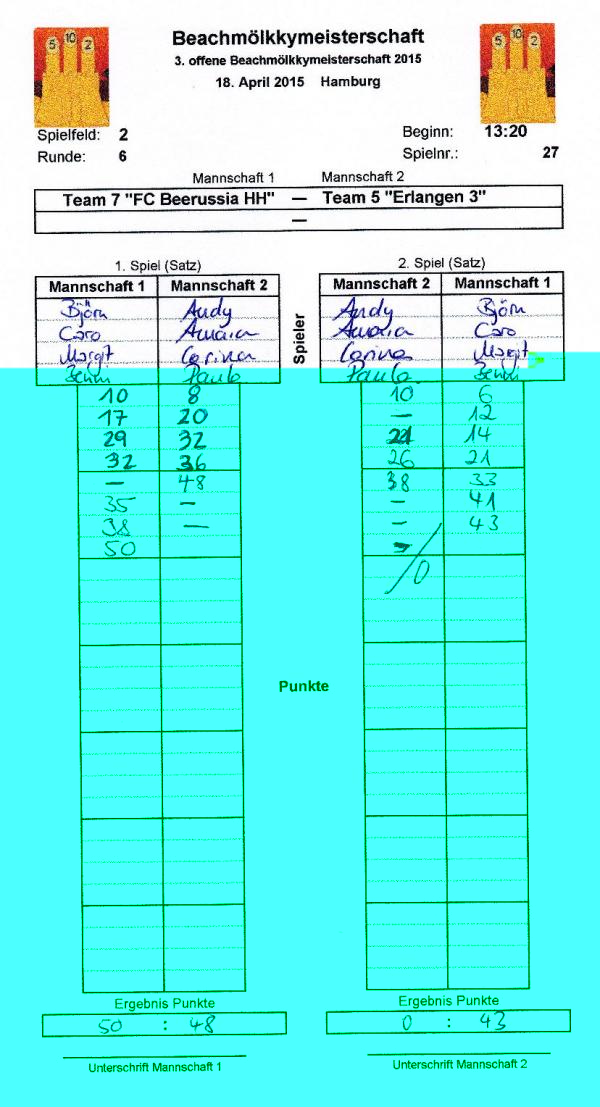 5 10 2
Beachmölkkymeisterschaft
5 10 2
3. offene Beachmölkkymeisterschaft 2015
18. April 2015 Hamburg
Spielfeld: 2 Beginn: 13:20
Runde: 6 Spielnr.: 27
Mannschaft 1 Mannschaft 2
Team 7 "FC Beerussia HH" — Team 5 "Erlangen 3"
—
1. Spiel (Satz) 2. Spiel (Satz)
Mannschaft 1 Mannschaft 2 Mannschaft 2 Mannschaft 1
Spieler
Björn Andy Andy Björn
Caro Caro
Margit Corinna Corinna Margit
Paula Paula
10 8 10 6
17 20 — 12
29 32 14
32 36 26 21
— 48 38 33
35 — — 41
38 — — 43
50
0
Punkte
Ergebnis Punkte Ergebnis Punkte
50 : 48 0 : 43
Unterschrift Mannschaft 1 Unterschrift Mannschaft 2